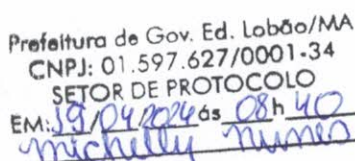 Prefeitura de Gov. Ed. Lobão/MA
CNPJ: 01.597.627/0001-34
SETOR DE PROTOCOLO
EM: 19/04/2024 ás 08h 40
Michelly Nunes